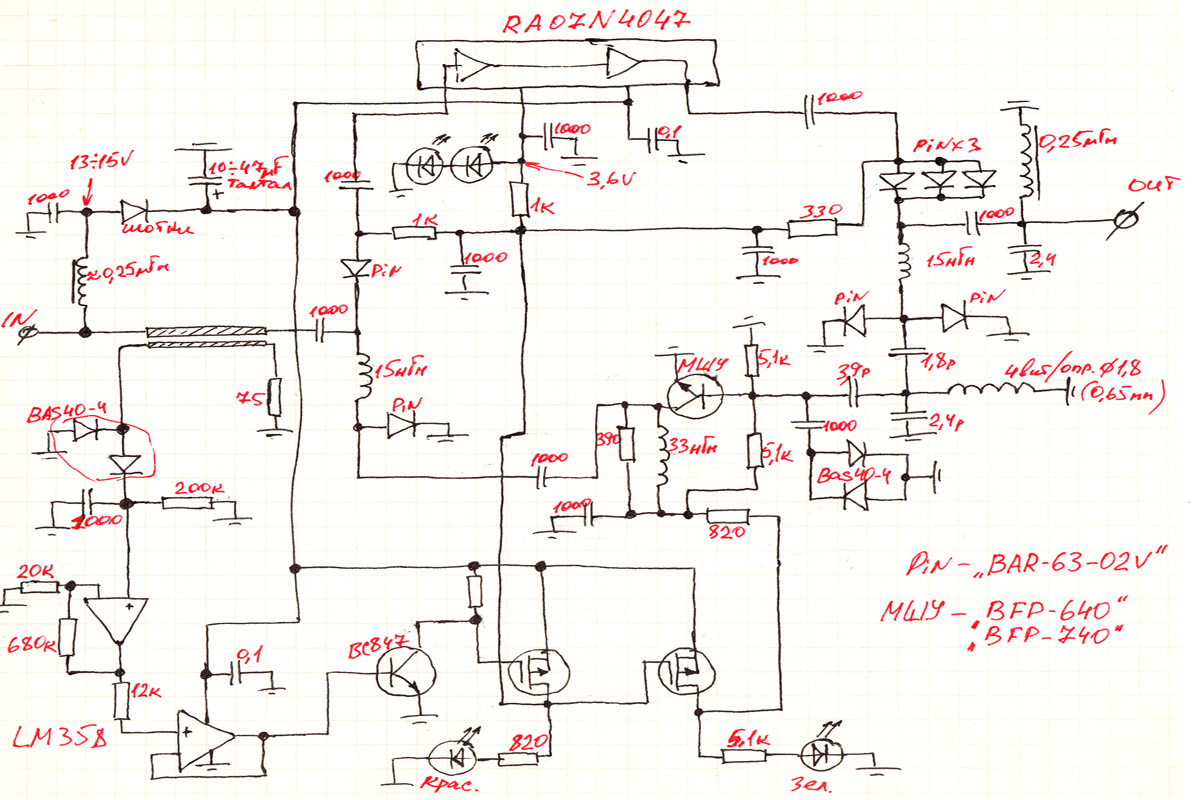 RA07N4047
1000
1000
0,1
PiN×3
0,25мГн
13÷15V
10÷47µF
тантал
1000
1000
3,6V
OUT
шотки
1K
1K
330
1000
1000
1000
2,4
≈0,25мГн
PiN
15нГн
IN
1000
PiN
PiN
15нГн
75
МШУ
5,1к
39p
1,8p
4вит/опр.Ø1,8
(0,65мм)
BAS40-4
PiN
390
33нГн
5,1к
1000
2,4p
Bas40-4
1000
200к
1000
1000
820
20K
680к
12к
0,1
BC847
PiN-„BAR-63-02V"
МШУ- „BFP-640"
„BFP-740"
LM358
820
5,1к
Крас.
Зел.